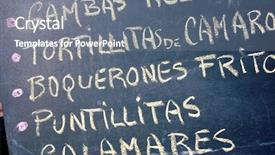 GAMBAS
Crystal
TORTILLITAS DE CAMARO
Templates for PowerPoint
BOQUERONES FRITO
PUNTILLITAS
CALAMARES